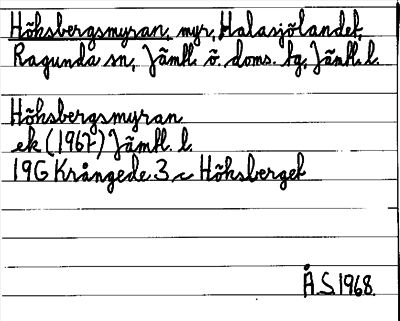 Höksbergsmyran, myr, Halasjölandet,
Ragunda sn, Jämtl. ö. doms. tg, Jämtl. l.
Höksbergsmyran
ek (1967) Jämtl. l.
19G Krångede 3 c Höksberget
Å.S. 1968.